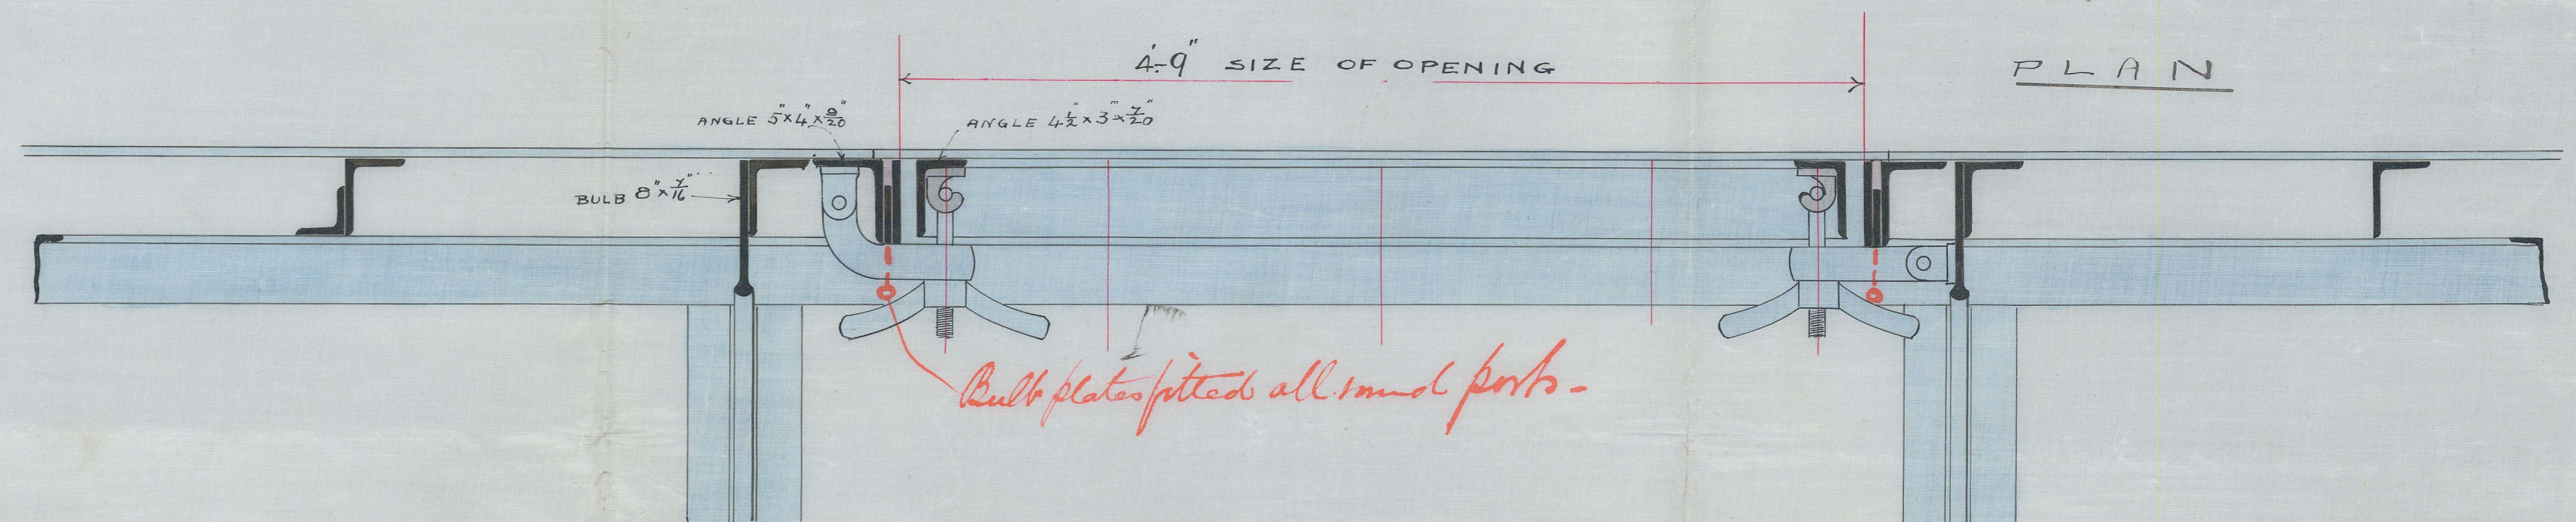 4'-9" SIZE OF OPENING
PLAN
ANGLE 5" x 4" x 9/20"
ANGLE 4 1/2" x 3" x 7/20"
BULB 8" x 7/16"
Bulb plates fitted all round ports -